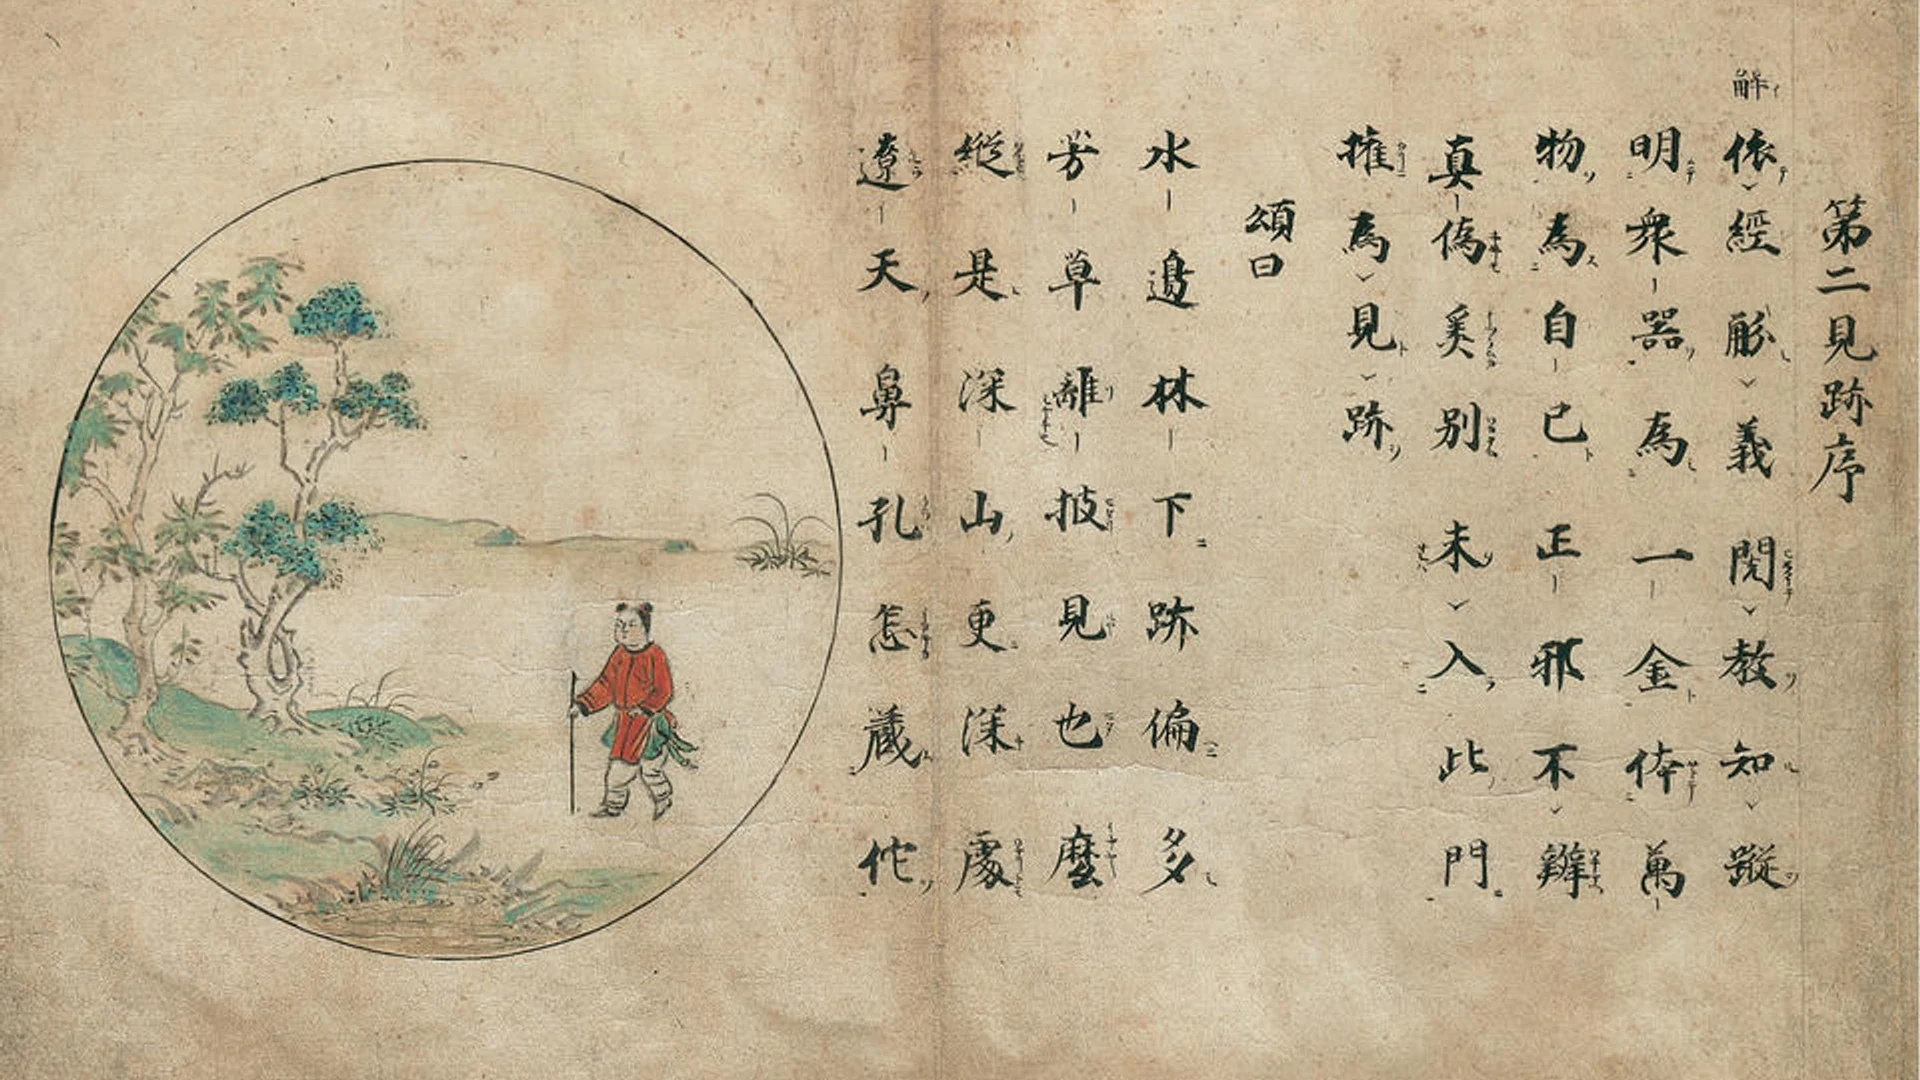 第二見跡序
解
依經觧義閲教知蹤
明衆器為一金体萬
物為自己正邪不辨
真偽奚別未入此門
権為見跡
頌曰
水邉林下跡偏多
芳草離披見也麼
縱是深山更深處
遼天鼻孔怎藏佗